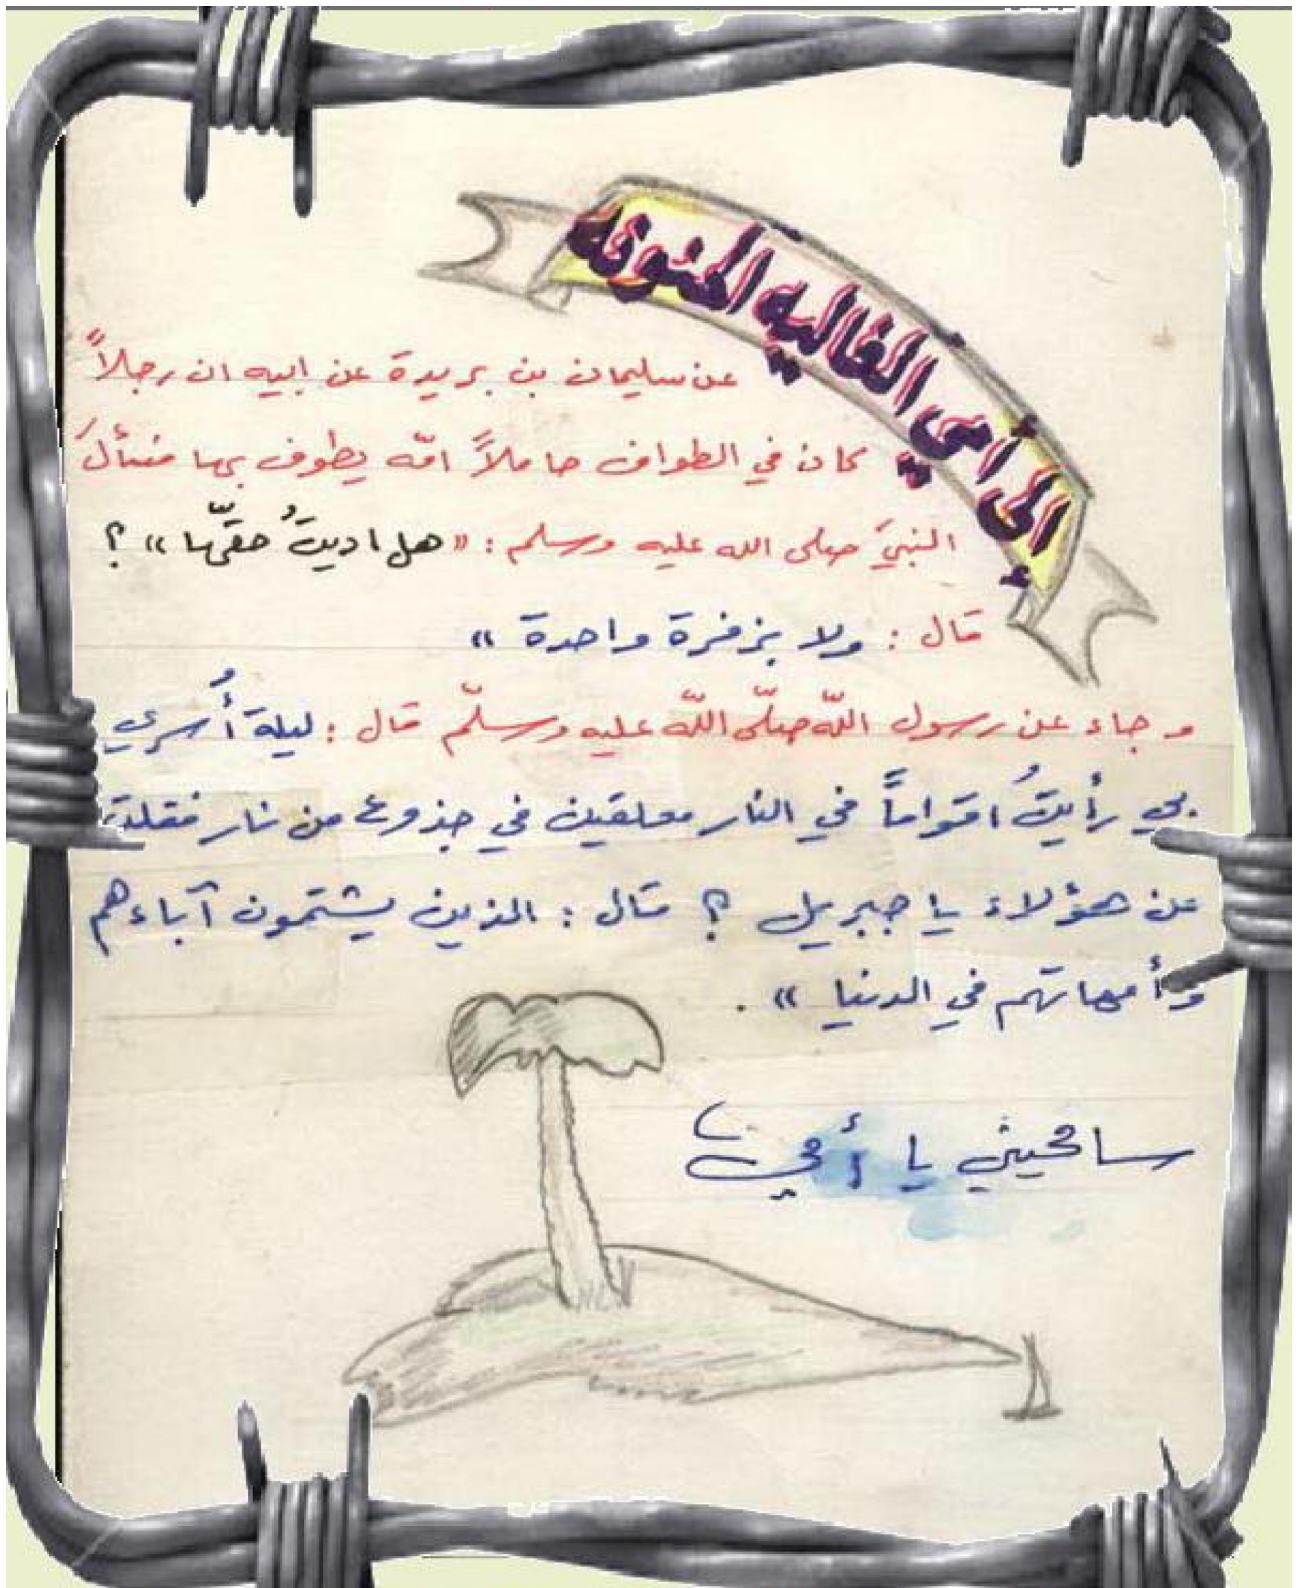 إلى أمي الغاليه الحنونه
عن سليمان بن بريدة عن ابيه ان رجلاً
كان في الطواف حاملاً امّه يطوف بها فسألَ
النبيَّ صلى الله عليه وسلم : « هل اديتُ حقّها » ؟
قال : ولا بزفرة واحدة »
و جاء عن رسول اللّه صلّى اللّه عليه وسلّم قال : ليلة أُسري
بي رأيتُ اقواماً في النار معلقين في جذوع من نار فقلت
عن هؤلاء يا جبريل ؟ قال : الذين يشتمون آباءهم
وأمهاتهم في الدنيا » .
سامحيني يا أمي